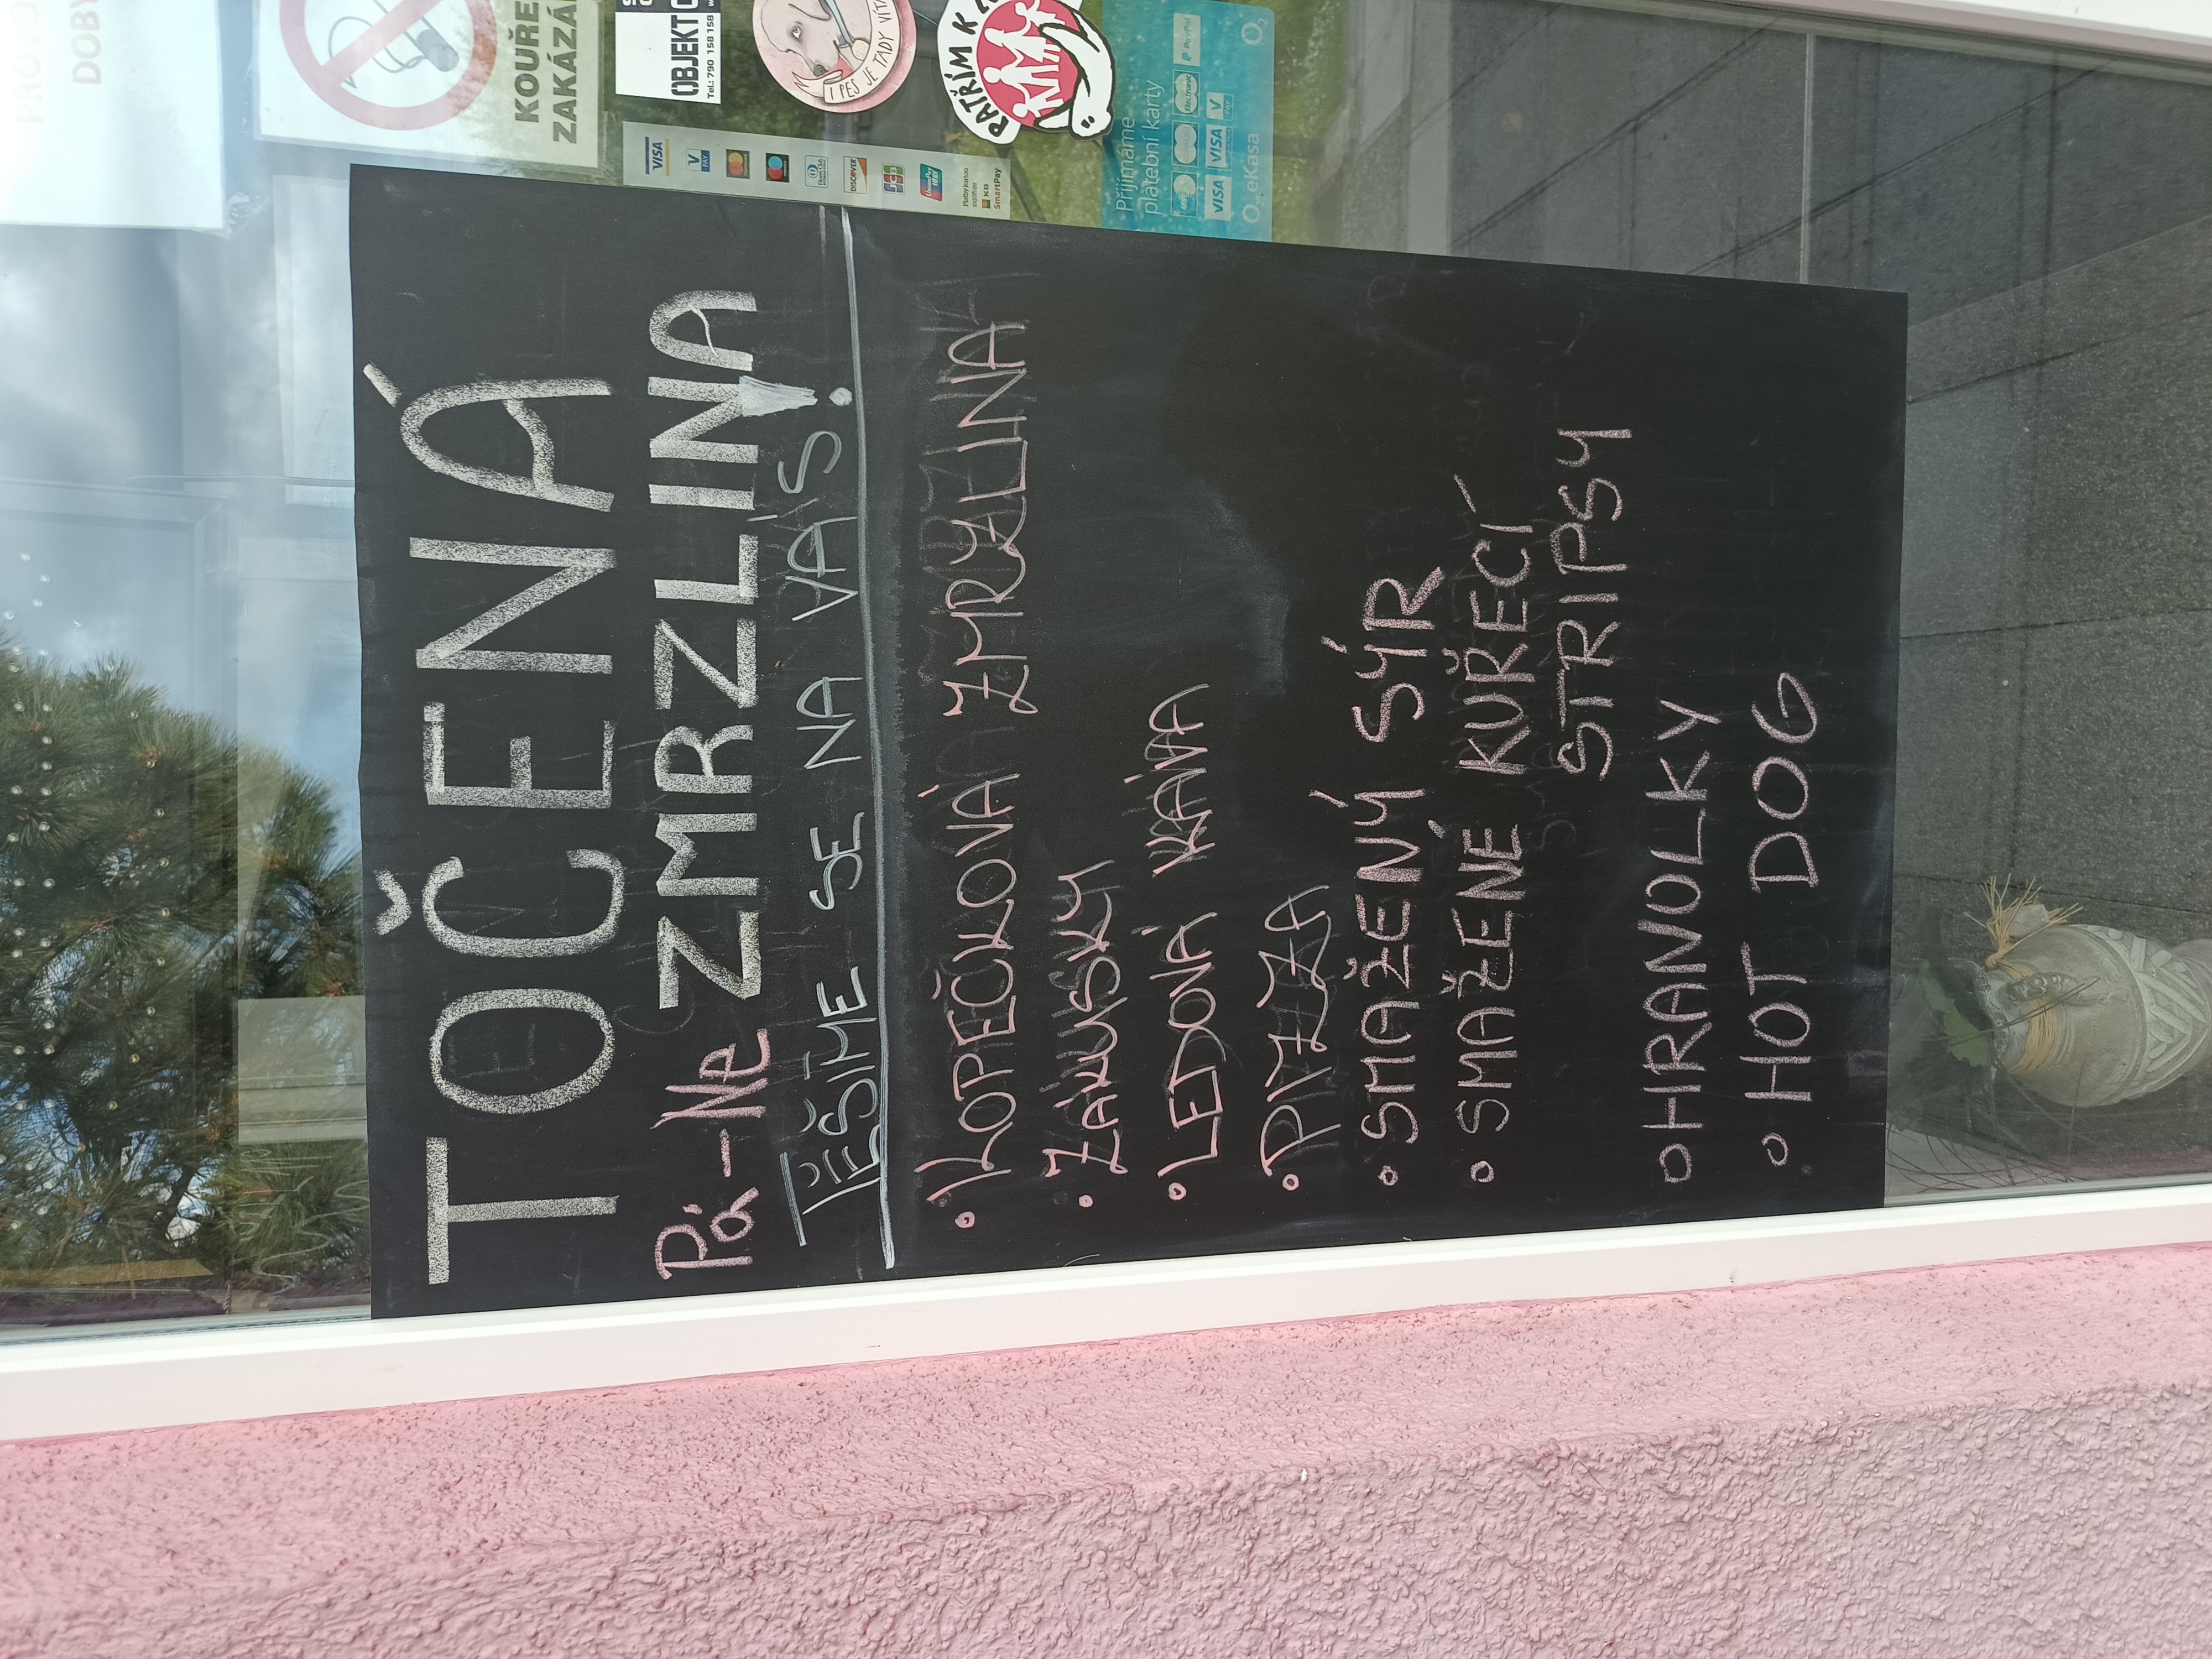 TOČENÁ
Pá-Ne ZMRZLINA
TĚŠÍME SE NA VÁS!
• KOPEČKOVÁ ZMRZLINA
• ZÁKUSKY
• LEDOVÁ KÁVA
• PIZZA
• SMAŽENÝ SÝR
• SMAŽENÉ KUŘECÍ
STRIPSY
• HRANOLKY
• HOT DOG
DOBY
KOUŘE
ZAKÁZÁ
OBJEKT
Tel.: 790 158 158
I PES JE TADY VÍTÁ
PATŘÍM K
VISA
V PAY
DISCOVER
JCB
UnionPay
KB SmartPay
Přijímáme
platební karty
Electronic
PayPal
VISA VISA V PAY
O2 eKasa
O2